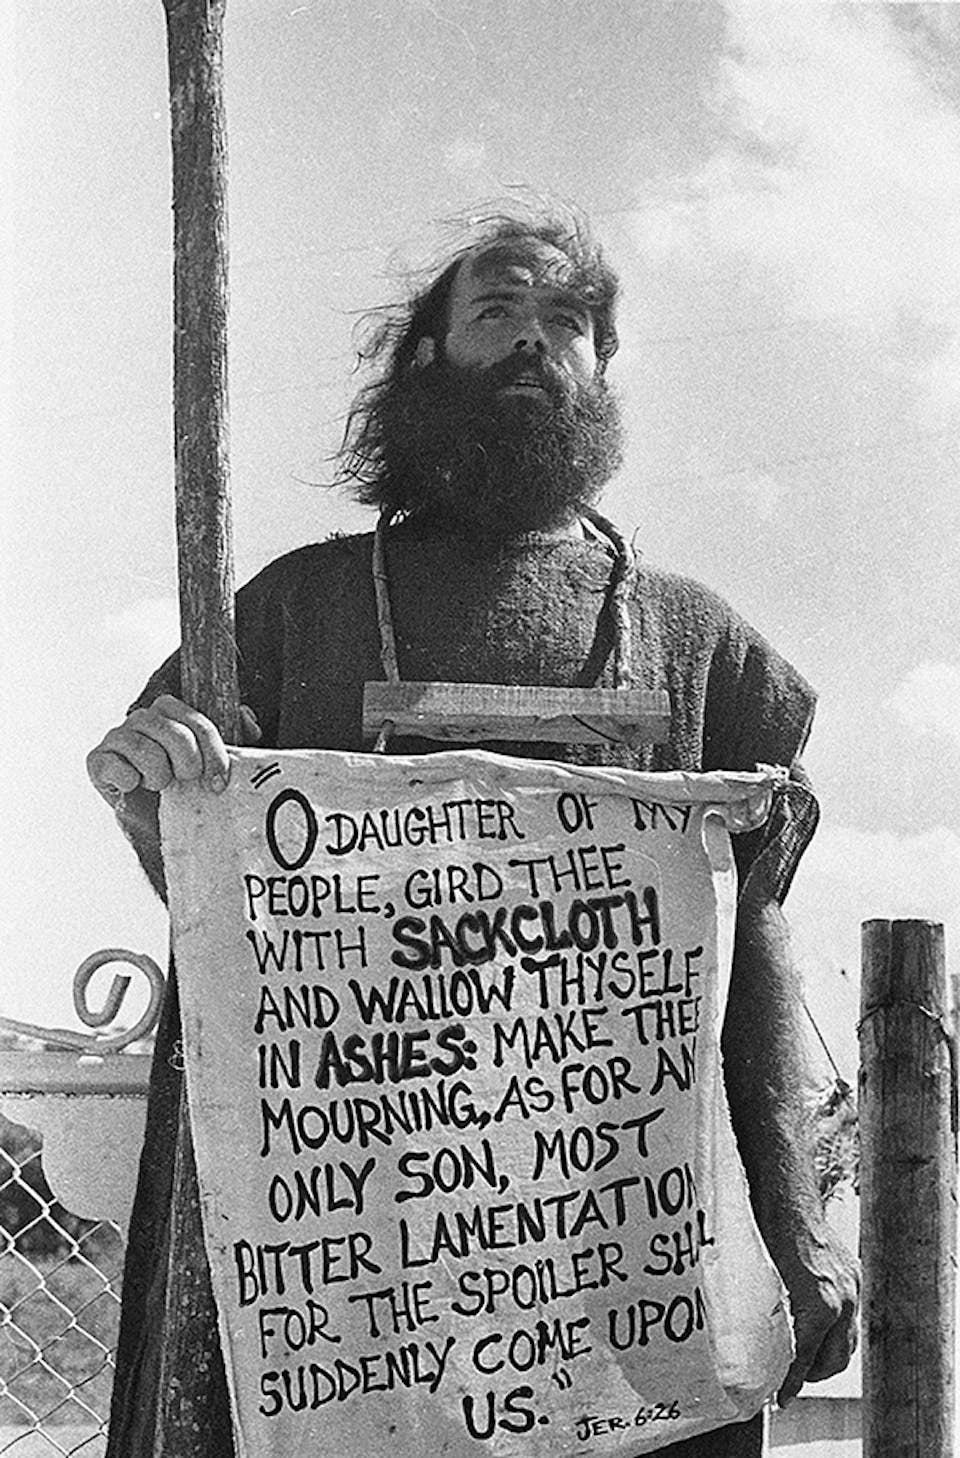 "O DAUGHTER OF MY
PEOPLE, GIRD THEE
WITH SACKCLOTH
AND WALLOW THYSELF
IN ASHES: MAKE THEE
MOURNING, AS FOR AN
ONLY SON, MOST
BITTER LAMENTATION
FOR THE SPOILER SHALL
SUDDENLY COME UPON
US."
JER. 6:26